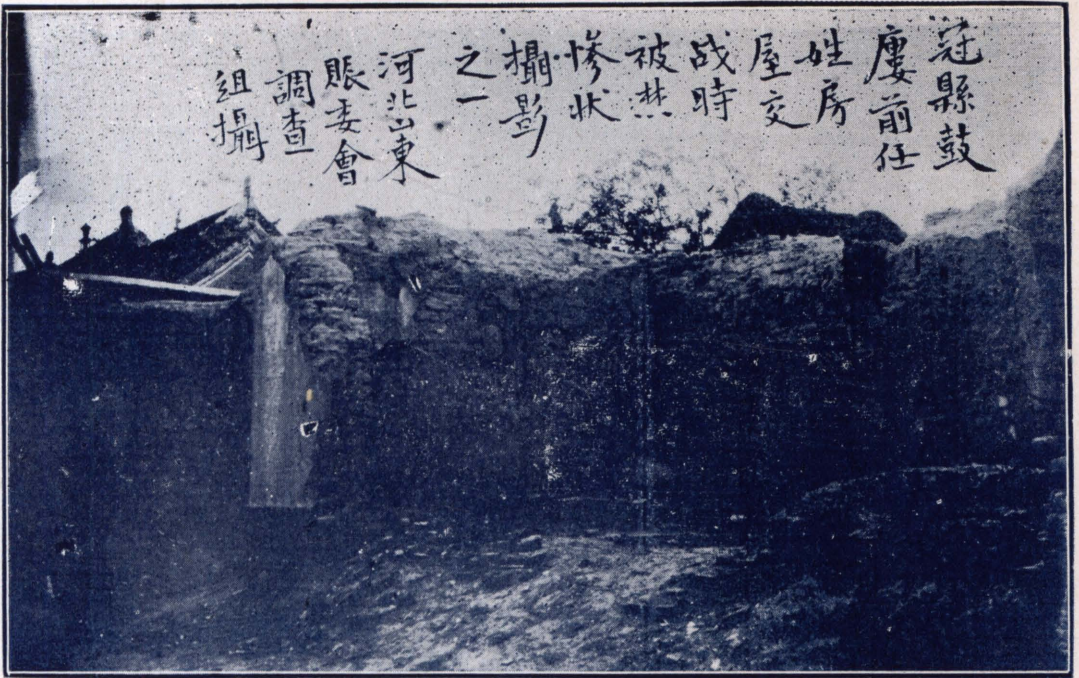 冠縣鼓
廔前任
姓房
屋交
战時
被焚
惨狀
攝影
之一
河北山東
賬委會
調查
組攝